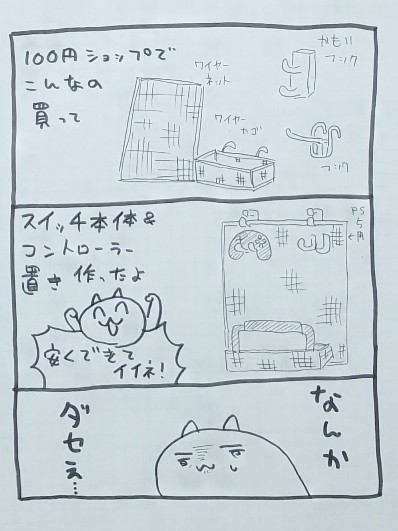 100円ショップで
こんなの
買って
ワイヤー
ネット
ワイヤー
カゴ
かもい
フック
フック
スイッチ本体&
コントローラー
置き作ったよ
安くできて
イイネ!
PS
5
も用
なんか
ダセぇ…